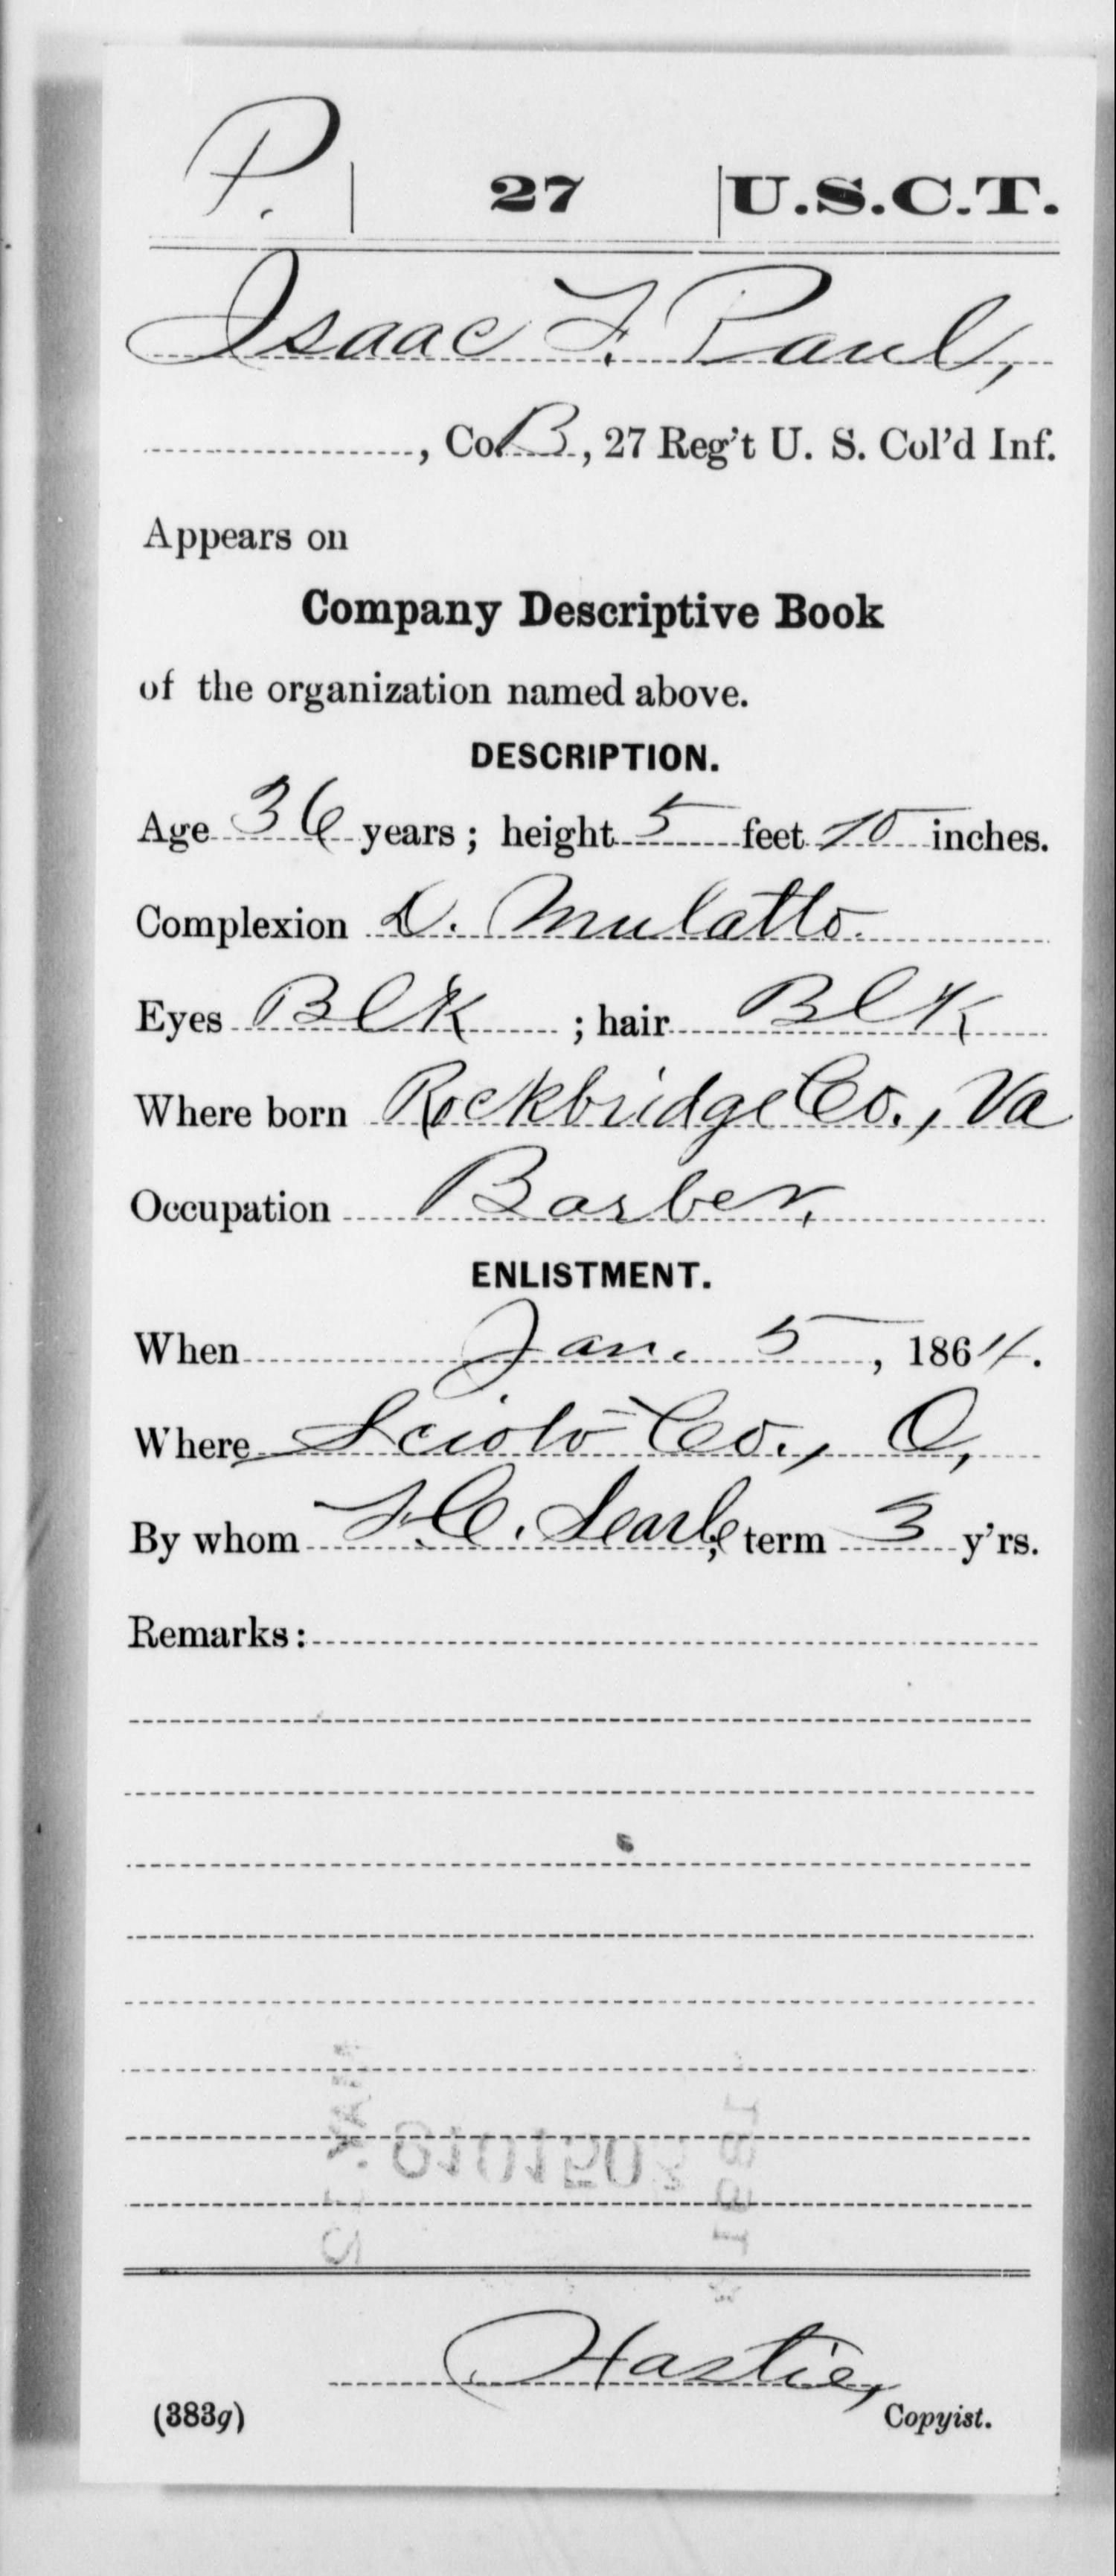 P. | 27 | U.S.C.T.
Isaac F. Paul,
, Co. B, 27 Reg't U. S. Col'd Inf.
Appears on
Company Descriptive Book
of the organization named above.
DESCRIPTION.
Age 36 years; height 5 feet 10 inches.
Complexion D. Mulatto.
Eyes Blk ; hair Blk
Where born Rockbridge Co., Va
Occupation Barber,
ENLISTMENT.
When Jan. 5, 1864.
Where Scioto Co., O,
By whom F. C. Searl; term 3 y'rs.
Remarks:
010150
Hastie,
(383g) Copyist.